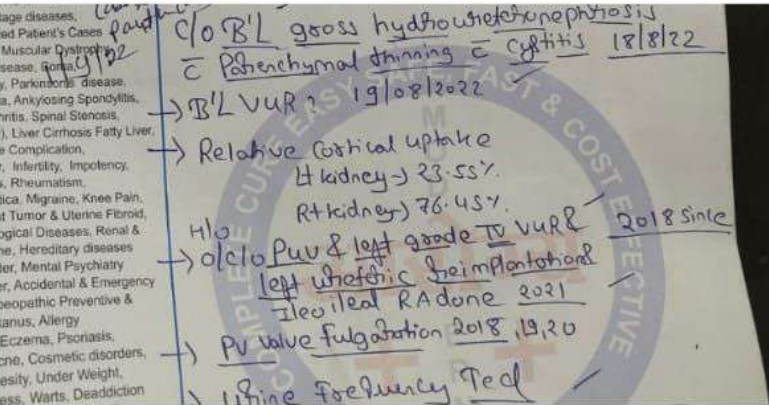 tage diseases,
ed Patient's Cases
Muscular Dystrophy
sease, Goma,
y, Parkinsons disease,
a, Ankylosing Spondylitis,
hritis, Spinal Stenosis,
), Liver Cirrhosis Fatty Liver,
e Complication,
r, Infertility, Impotency,
s, Rheumatism,
tica, Migraine, Knee Pain,
d Tumor & Uterine Fibroid,
ogical Diseases, Renal &
ne, Hereditary diseases
er, Mental Psychiatry
r, Accidental & Emergency
oeopathic Preventive &
tanus, Allergy
Eczema, Psoriasis,
cne, Cosmetic disorders,
esity, Under Weight,
ess, Warts, Deaddiction
C/O B'L gross hydroureteronephrosis
c̄ Parenchymal thinning c̄ Cystitis 18/8/22
→ B'L VUR? 19/08/2022
→ Relative Cortical uptake
Lt kidney → 23.55%
Rt kidney → 76.45%
H/O
→ O/C/O PUV & left grade IV VUR & 2018 Since
left ureteric reimplantation &
Ileoileal RA done 2021
→ PU valve Fulgaration 2018, 19, 20
Urine Frequency
COMPLETE CURE EASY SAFE, FAST & COST EFFECTIVE